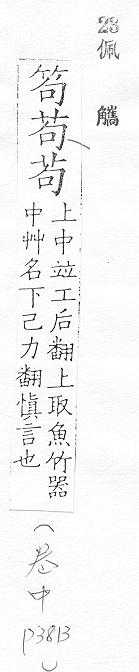 23
佩觿
笱苟茍
上中竝工后翻上取魚竹器
中艸名下己力翻慎言也
(卷中
P38B)